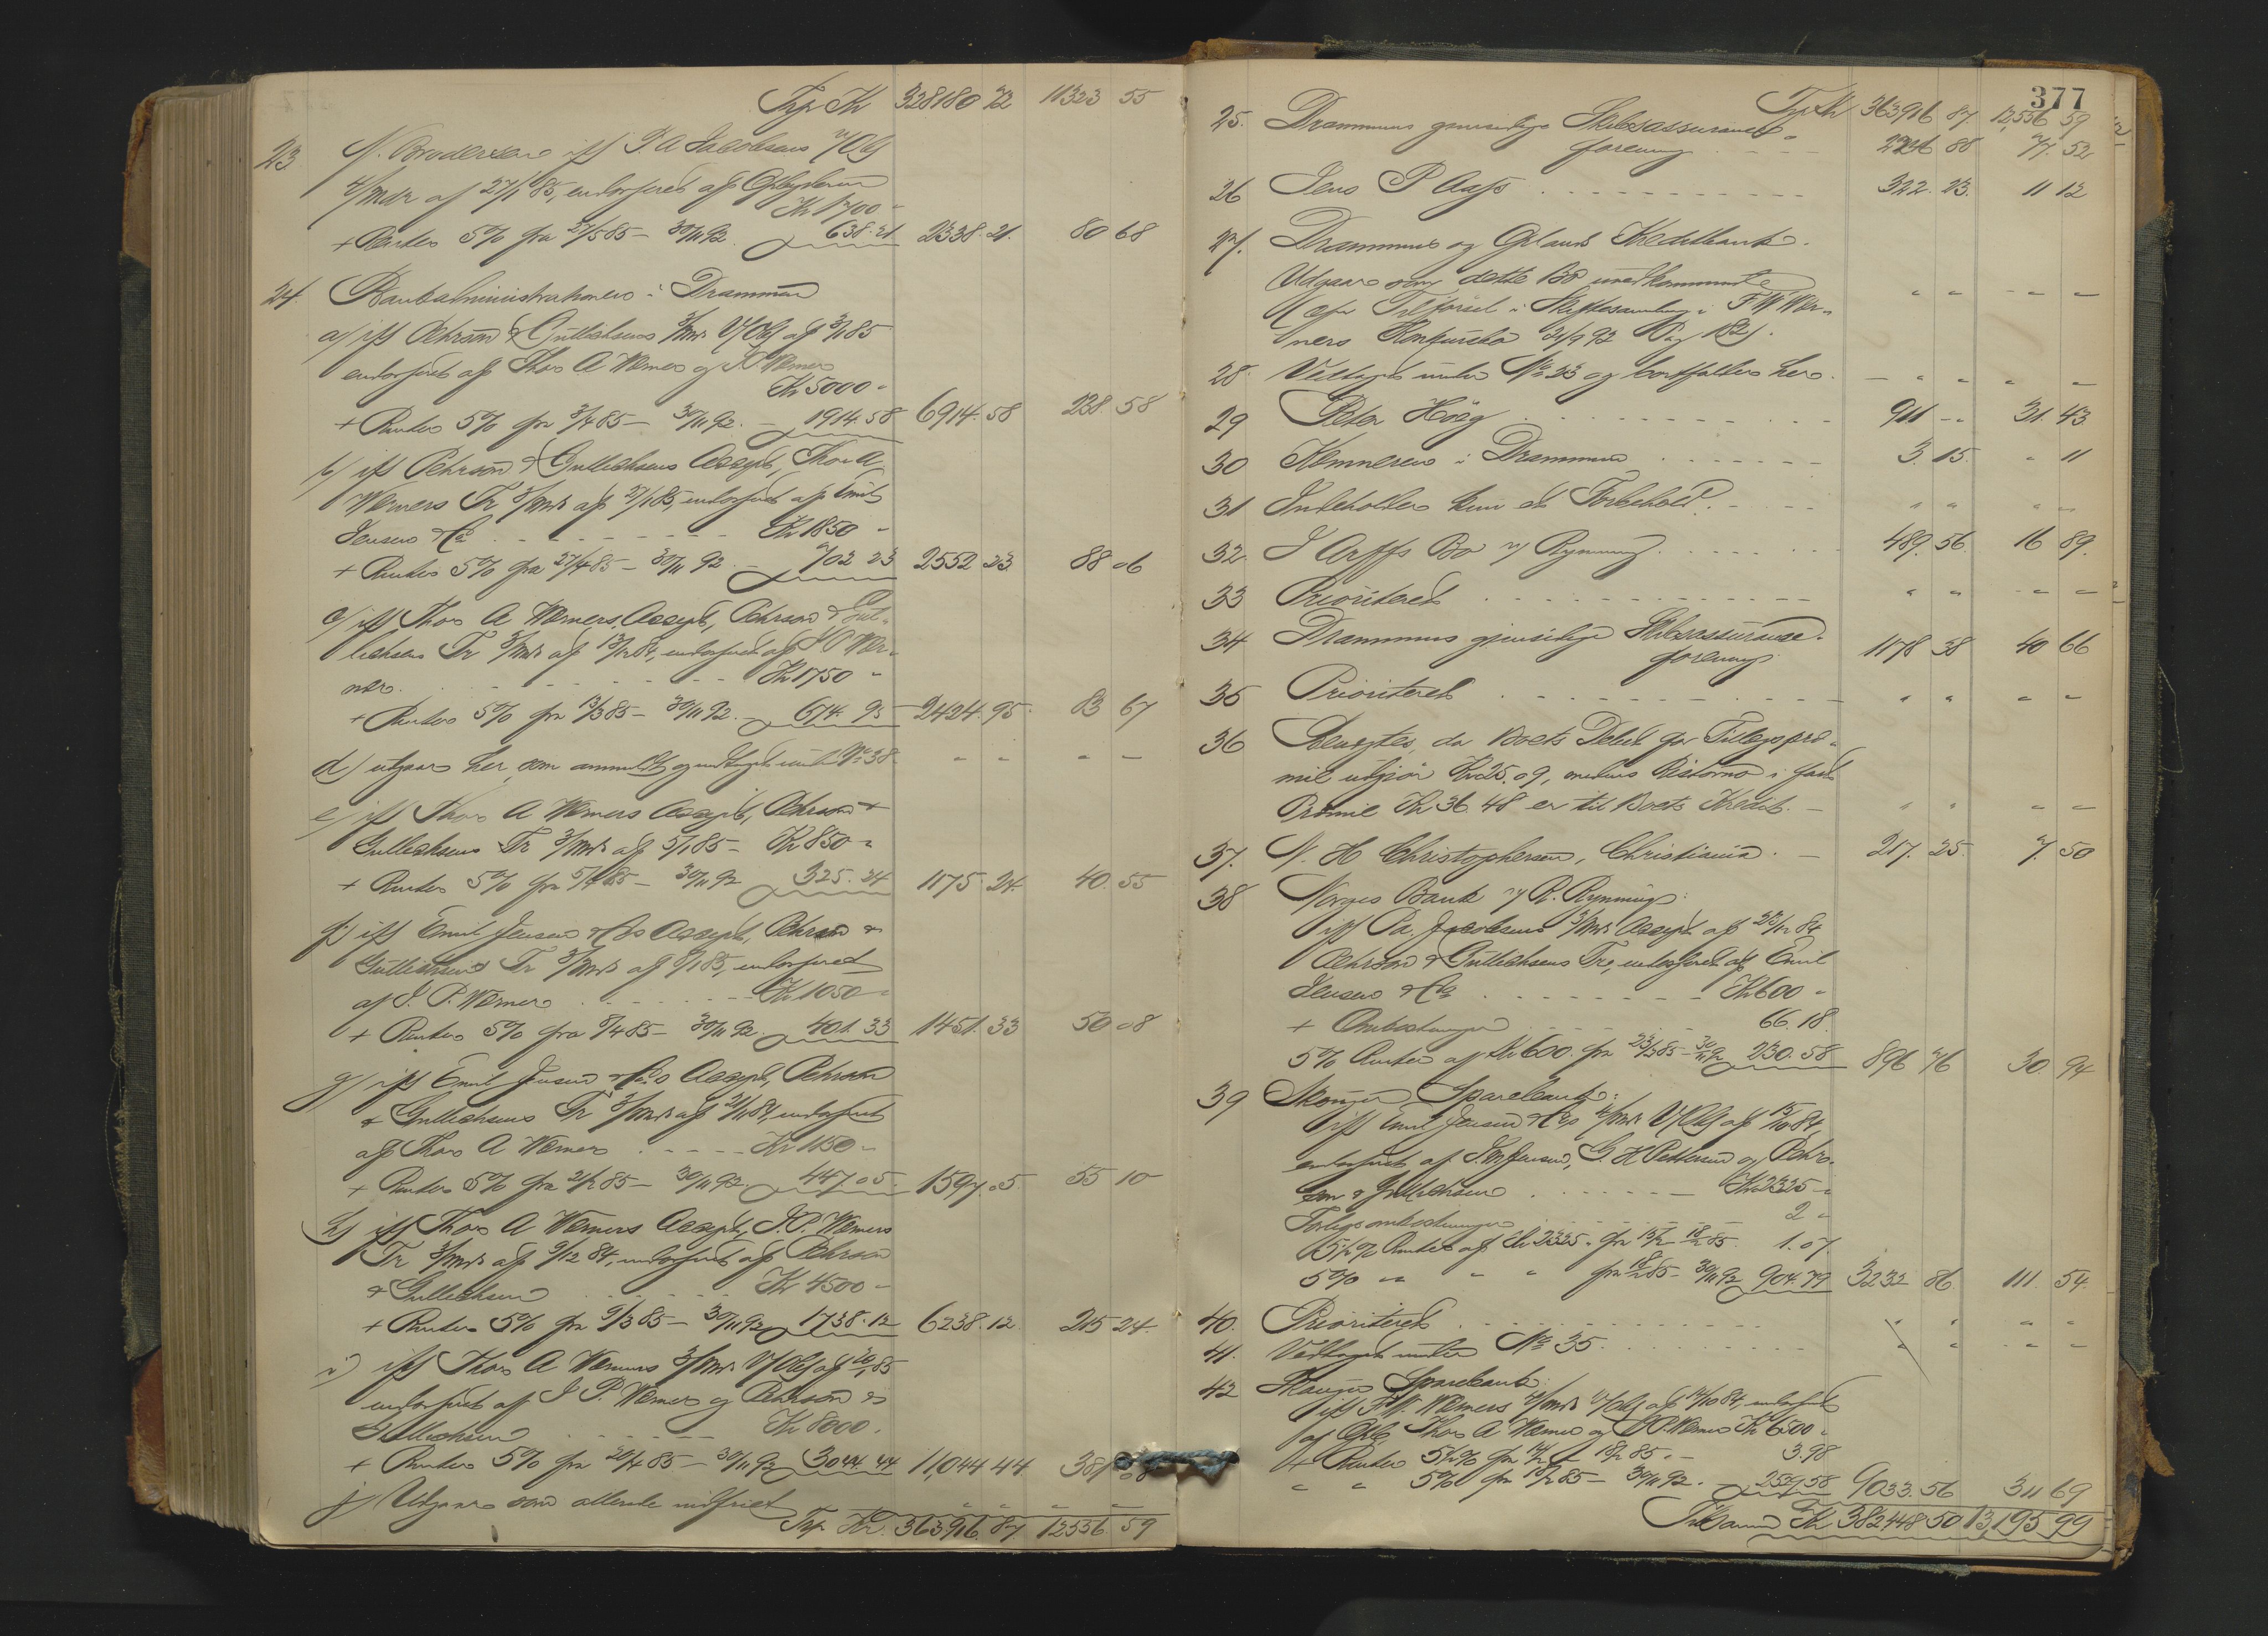 Trp Kr 328180 72 11323 55
23. N. Brodersen iff P. A. Jacobsens V/Obl
4/mdr af 27/1 85, endosseret af
Kr 1700 "
+ Renter 5% fra 27/5 85 – 30/11 92. 638.21 2338.21. 80 68
24. Bankadministrationen i Drammen
a) iff Pehrson & Gulliksens 3/mdr V/Obl af 3/1 85
endosseret af Thor A Werner og J P Werner
Kr 5000 "
+ Renter 5% fra 3/4 85 – 30/11 92. – 1914.58 6914.58 238.58
b) iff Pehrson & Gulliksens Accept, Thor A
Werners Tr 3/mdr af 27/1 85, endosseret af Emil
Jensen & Co Kr 1850 "
+ Renter 5% fra 27/4 85 – 30/11 92 – 702 23 2552 23 88 06
c) iff Thor A Werners Accept, Pehrson & Gul-
liksens Tr 3/mdr af 13/12 84, endosseret af J P Wer-
ner. Kr 1750 "
+ Renter 5% fra 13/3 85 – 30/11 92. 674. 95 2424.95. 83 67
d) udgaar her som anmeldt og under No 38 " " – –
e) iff Thor A Werners Accept, Pehrson &
Gulliksens Tr 3/mdr af 5/1 85 – Kr 850 "
+ Renter 5% fra 5/4 85 – 30/11 92 325.24 1175.24. 40.55
f) iff Emil Jensen & Cos Accept, Pehrson &
Gulliksens Tr 3/mdr af 8/1 85, endosseret
af J. P. Werner Kr 1050 "
+ Renter 5% fra 8/4 85 – 30/11 92. 401.33 1451.33 50 08
g) iff Emil Jensen & Cos Accept, Pehrson
& Gulliksens Tr 3/mdr af 21/11 84, endosseret
af Thor A Werner Kr 1150 "
+ Renter 5% fra 21/2 85 – 30/11 92. 447.05. 1597.05. 55 10
h) iff Thor A Werners Accept, J. P. Werners
Tr 3/mdr af 9/12 84, endosseret af Pehrson
& Gulliksen Kr 4500 –
+ Renter 5% fra 9/3 85 – 30/11 92 1738.12 6238.12. 215 24.
i) iff Thor A Werners 3/mdr V/Obl af 20/1 85
endosseret af J P. Werner og Pehrson &
Gulliksen Kr 8000.
+ Renter 5% fra 20/4 85 – 30/11 92 3044 44 11,044 44. 381 08
j) Udgaar som allerede indfriet " " – –
Trp Kr. 363916.87 12556.59
377
Trp Kr 363916 87 12,556 59
25. Drammens gjensidige Skibsassurance-
forening 2246 88 77.52
26 Jens P Aass 322.23. 11 12
27. Drammens og Oplands Kreditbank.
Udgaar som dette Bo uvedkommende
(efter Tilførsel i Skiftesamling i F W Wer-
ners Konkursbo 3/9 92 Pag 182). " – " – –
28. Vedtaget under No 23 og bortfalder her. – " " " –
29 Peter Höeg 911 – – 31.43
30 Kemneren i Drammen 3.15. " 11
31 Indeholder kun et Forbehold. " " " "
32. J Arffs Bo v/ Rynning 489.56. 16 89.
33 Prioriteret " " – –
34 Drammens gjensidige Skibsassurance-
forening 1178 38 40 66
35 Prioriteret " " – –
36 Benegtes, da Boets Debet for Tillægspræ-
mie udgjør Kr 25.09, medens Ristorno i fast
Præmie Kr 36.48 er til Boets Kredit. – " " – –
37. N. H Christophersen, Christiania. – 217.25. 7.50
38 Norges Bank v/ R. Rynning:
iff P A. Jacobsens 3/mdr Accept af 23/12 84
Pehrson & Gulliksens Tr, endosseret af Emil
Jensen & Co Kr 600 "
+ Omkostninger 66.18.
5% Renter af Kr 600. fra 23/3 85 – 30/11 92 230.58 896 76 30.94
39 Skouger Sparebank:
iff Emil Jensen & Cos 4/mdr V/Obl af 15/10 84,
endosseret af J. M. Jensen, G. H Pettersen og Pehr-
son & Gulliksen Kr 2325 "
Forligsomkostninger 2 "
5 1/2 % Renter af Kr 2325. fra 15/2 – 18/2 85 1.07.
5% " " " fra 18/2 85 – 30/11 92 904.79 3232 86 111.54.
40. Prioriteret " " " –
41. Vedtaget under No 35. " " " –
42 Skouger Sparebank:
iff F. W. Werners 4/mdr V/Obl af 14/10 84, endosseret
af Thor A Werner og J P. Werner Kr 6500 "
+ Renter 5 1/2 % fra 14/2 – 18/2 85 " – 3.98
" " 5% fra 18/2 85 – 30/11 92. – 2529.58 9033.56 311 69
Tilsammen Kr 382448 50 13,195 99